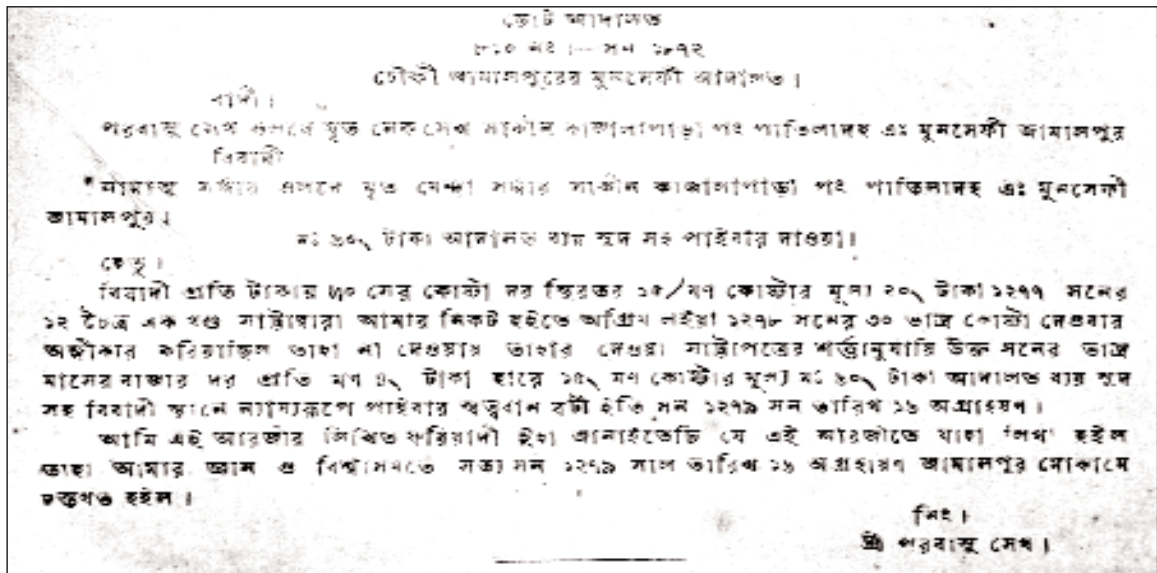 ছোট আদালত
৮১০ নং।— সন ১৮৭২
চৌকী জামালপুরের মুনসেফী আদালত।
বাদী।
পরবাসু সেখ ওলদে মৃত নেক সেখ সাকীন কাজালাপাড়া পং পাতিলাদহ এঃ মুনসেফী জামালপুর
বিবাদী
সর্দার ওলদে মৃত মেন্দা সর্দার সাকীন কাজালাপাড়া পং পাতিলাদহ এঃ মুনসেফী
জামালপুর।
মঃ ৬০৲ টাকা আদালত ব্যয় সুদ সহ পাইবার দাওয়া।
হেতু।
বিবাদী প্রতি টাকায় ৸০ সের কোষ্টা দর স্থিরতর ১৫/মণ কোষ্টার মূল্য ২০৲ টাকা ১২৭৭ সনের
১২ চৈত্র এক খণ্ড সাট্টাদ্বারা আমার নিকট হইতে অগ্রিম লইয়া ১২৭৮ সনের ৩০ ভাদ্র কোষ্টা দেওবার
অঙ্গীকার করিয়াছিল তাহা না দেওয়ায় তাহার দেওয়া সাট্টাপত্রের শর্ত্তানুযায়ি উক্ত সনের ভাদ্র
মাসের বাজার দর প্রতি মণ ৪৲ টাকা হারে ১৫৲ মণ কোষ্টার মূল্য মঃ ৬০৲ টাকা আদালত ব্যয় সুদ
সহ বিবাদী স্থানে ন্যায্যরূপে পাইবার স্বত্ববান বটী ইতি সন ১২৭৯ সন তারিখ ১৬ অগ্রাহয়ণ।
আমি এই আরজীর লিখিত ফরিয়াদী ইহা জানাইতেছি যে এই আরজীতে যাহা লিখা হইল
তাহা আমার জ্ঞান ও বিশ্বাসমতে সত্য সন ১২৭৯ সাল তারিখ ১৬ অগ্রহায়ণ জামালপুর মোকামে
দস্তখত হইল।
নিং।
শ্রী পরবাসু সেখ।